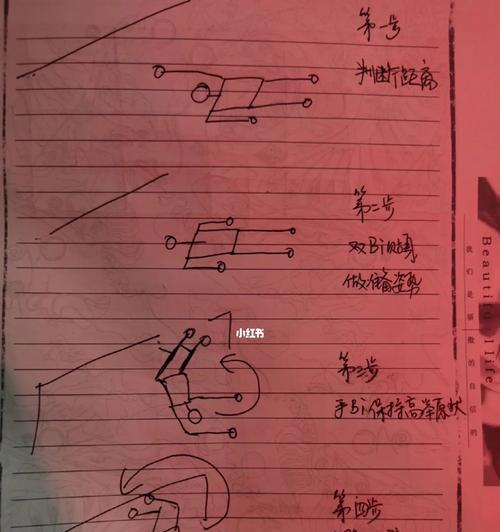 第一步
判断距离
第二步
双Bi伸
做准备姿势
小红书
第三步
手Bi保持高举
状
第四步
Beautiful life
我们是骄傲的自信的